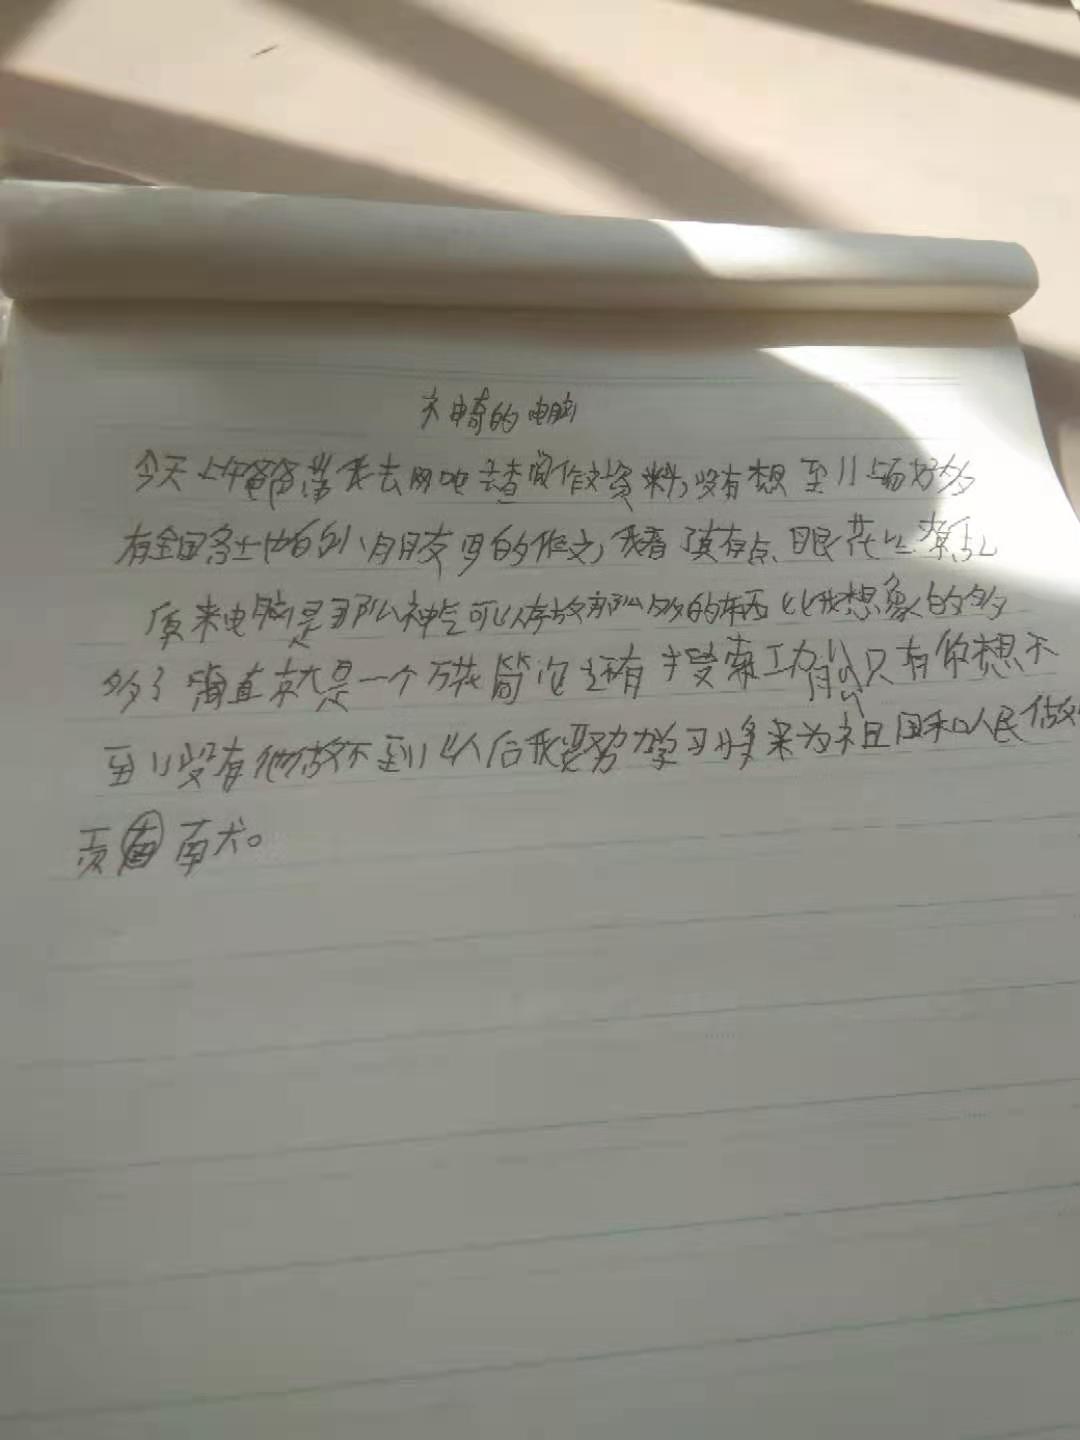 神奇的电脑
今天上午爸爸带我去网吧去查阅作文资料,没有想到上场好多
有全国各土也的小月月友写的作文,我看了真有点眼花
原来电脑是那么神气可以存放那么多的东西比我想象的多多
多了简直就是一个万花筒它还有搜索工功能只有你想不
到没有他做不到以后我要努力学习将来为祖国和人民做
贡